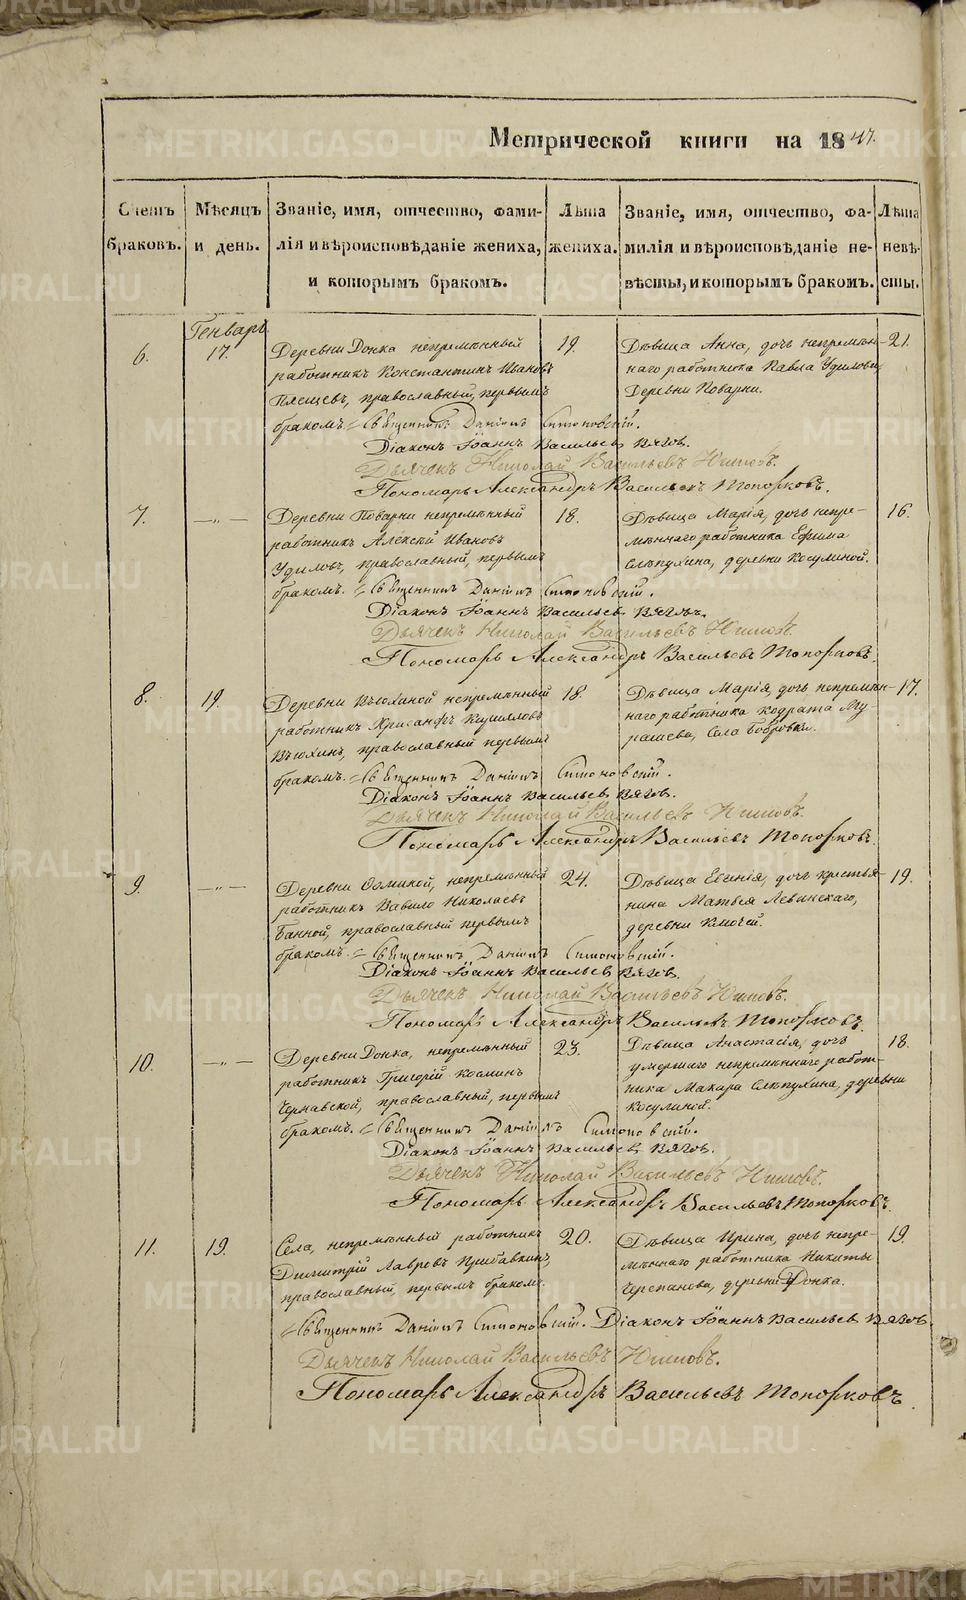 Метрической книги на 1847.
Счетъ браковъ. Мѣсяцъ и день. Званіе, имя, отчество, фамилія и вѣроисповѣданіе жениха, и которымъ бракомъ. Лѣта жениха. Званіе, имя, отчество, фамилія и вѣроисповѣданіе невѣсты, и которымъ бракомъ. Лѣта невѣсты.
Генварь
6. 17. Деревни Донка непремѣнный 19. Дѣвица Анна, дочь непремѣн- 21.
работникъ Константинъ Ивановъ наго работника Павла Удилова,
православный, первымъ Деревни Поварни.
бракомъ. Священникъ Данiилъ
Діаконъ Іоаннъ Васильевъ Вяговъ.
Дьячекъ Николай Васильевъ
Пономарь Александръ Васильевъ Топорковъ.
7. —„— Деревни Поварни непремѣнный 18. Дѣвица Марія, дочь непре- 16.
работникъ Алексѣй Ивановъ мѣннаго работника Ефима
Удиловъ, православный, первымъ Слѣпухина, деревни Косулиной.
бракомъ. Священникъ Даніилъ
Діаконъ Іоаннъ Васильевъ Вяговъ.
Дьячекъ Николай Васильевъ
Пономарь Александръ Васильевъ Топорковъ.
8. 19. Деревни Вьюхиной непремѣнный 18. Дѣвица Марія, дочь непремѣн- 17.
работникъ Хрисанфъ Кирилловъ наго работника Кодрата Му-
Вьюхинъ, православный первымъ рашева, Села Бобровки.
бракомъ. Священникъ Даніилъ
Діаконъ Іоаннъ Васильевъ Вяговъ.
Дьячекъ Николай Васильевъ
Пономарь Александръ Васильевъ Топорковъ.
9. —„— Деревни непремѣнный 24. Дѣвица Евгенія, дочь крестья- 19.
работникъ Вавило Николаевъ нина Матвѣя Левинскаго,
Банной, православный первымъ деревни Ключей.
бракомъ. Священникъ Даніилъ
Діаконъ Іоаннъ Васильевъ Вяговъ.
Дьячекъ Николай Васильевъ
Пономарь Александръ Васильевъ Топорковъ.
10. —„— Деревни Донка, непремѣнный 23. Дѣвица Анастасія, дочь 18.
работникъ Григорій Косминъ умершаго непремѣннаго работ-
Чернавской, православный, первымъ ника Макара Слѣпухина, деревни
бракомъ. Косулиной.
Священникъ Даніилъ
Діаконъ Іоаннъ Васильевъ Вяговъ.
Дьячекъ Николай Васильевъ
Пономарь Александръ Васильевъ Топорковъ.
11. 19. Села, непремѣнный работникъ 20. Дѣвица Ирина, дочь непре- 19.
Димитрій Лавровъ Прибавкинъ, мѣннаго работника Никиты
православный, первымъ бракомъ. Черепанова, деревни Донка.
Священникъ Даніилъ Діаконъ Іоаннъ Васильевъ Вяговъ.
Дьячекъ Николай Васильевъ
Пономарь Александръ Васильевъ Топорковъ.
METRIKI.GASO-URAL.RU